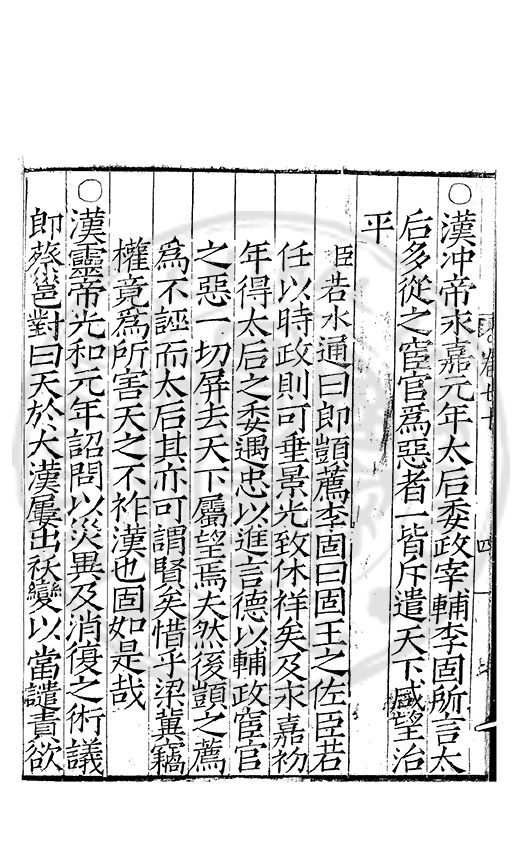 ○漢冲帝永嘉元年太后委政宰輔李固所言太
后多從之宦官爲惡者一皆斥遣天下咸望治
平
臣若水通曰郎顗薦李固曰固王之佐臣若
任以時政則可垂景光致休祥矣及永嘉初
年得太后之委遇忠以進言德以輔政宦官
之惡一切屏去天下屬望焉夫然後顗之薦
爲不誣而太后其亦可謂賢矣惜乎梁冀竊
權竟爲所害天之不祚漢也固如是哉
○漢靈帝光和元年詔問以災異及消復之術議
郎蔡邕對曰天於大漢屢出祅變以當譴責欲